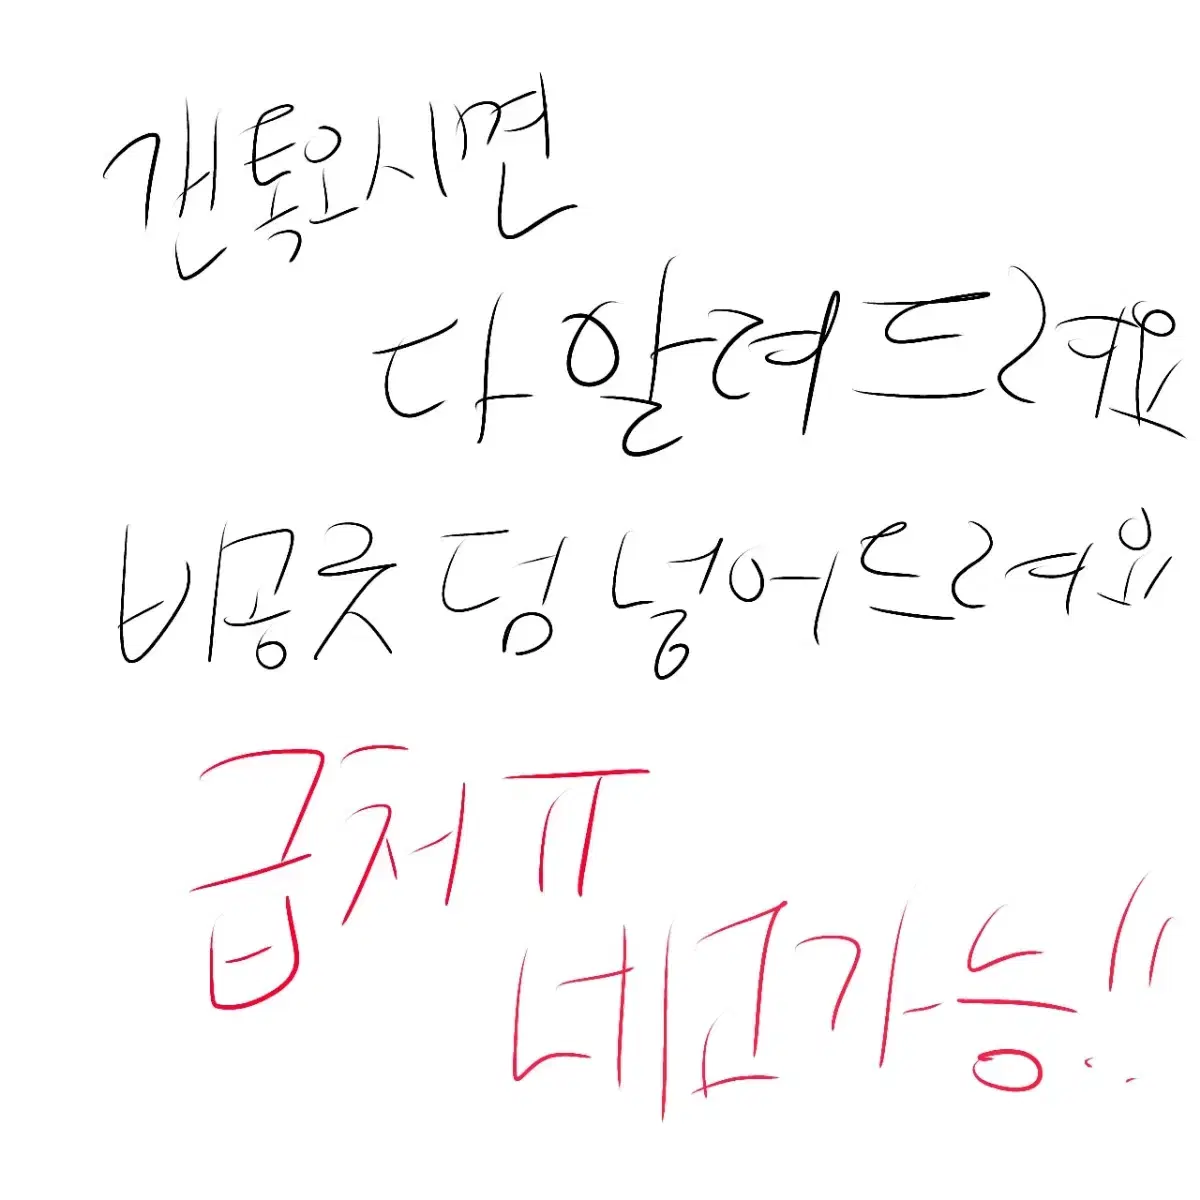 갠톡오시면
다 알려드려요
비공굿 덤 넣어드려요
급처ㅠ
네고가능!!